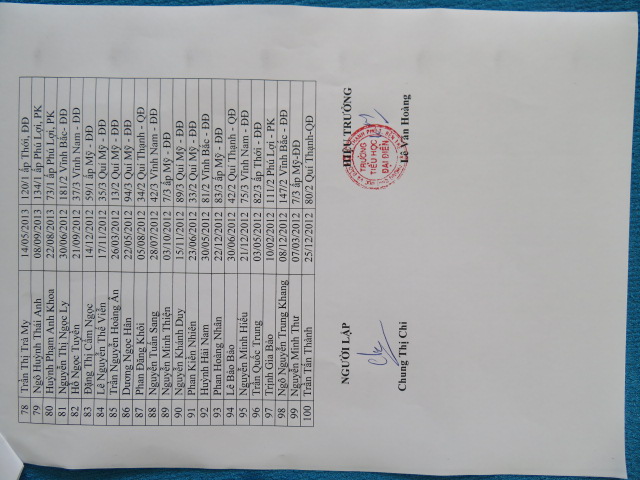 78 Trần Thị Trà My 14/05/2013 120/1 ấp Thới, ĐĐ
79 Ngô Huỳnh Thái Anh 08/09/2013 134/1 ấp Phú Lợi, PK
80 Huỳnh Phạm Anh Khoa 22/08/2013 73/1 ấp Phú Lợi, PK
81 Nguyễn Thị Ngọc Ly 30/06/2012 181/2 Vĩnh Bắc- ĐĐ
82 Hồ Ngọc Tuyền 21/09/2012 37/3 Vĩnh Nam - ĐĐ
83 Đặng Thị Cẩm Ngọc 14/12/2012 59/1 ấp Mỹ - ĐĐ
84 Lê Nguyễn Thế Viễn 17/11/2012 35/3 Qui Mỹ - ĐĐ
85 Trần Nguyễn Hoàng Ân 26/03/2012 13/2 Qui Mỹ - ĐĐ
86 Dương Ngọc Hân 22/05/2012 94/3 Qui Mỹ - ĐĐ
87 Phan Đăng Khôi 05/08/2012 34/2 Qui Thạnh - QĐ
88 Nguyễn Tuấn Sang 28/07/2012 42/3 Vĩnh Nam - ĐĐ
89 Nguyễn Minh Thiện 03/10/2012 7/3 ấp Mỹ - ĐĐ
90 Nguyễn Khánh Duy 15/11/2012 89/3 Qui Mỹ - ĐĐ
91 Phan Kiến Nhiên 23/06/2012 33/2 Qui Mỹ - ĐĐ
92 Huỳnh Hải Nam 30/05/2012 81/2 Vĩnh Bắc - ĐĐ
93 Phan Hoàng Nhân 22/12/2012 83/3 ấp Mỹ - ĐĐ
94 Lê Bảo Bảo 30/06/2012 42/2 Qui Thạnh - QĐ
95 Nguyễn Minh Hiếu 21/12/2012 75/3 Vĩnh Nam - ĐĐ
96 Trần Quốc Trung 03/05/2012 82/3 ấp Thới - ĐĐ
97 Trịnh Gia Bảo 10/02/2012 111/2 Phú Lợi, - PK
98 Ngô Nguyễn Trung Khang 08/12/2012 147/2 Vĩnh Bắc - ĐĐ
99 Nguyễn Minh Thư 07/03/2012 7/3 ấp Mỹ-ĐĐ
100 Trần Tấn Thành 25/12/2012 80/2 Qui Thạnh-QĐ
NGƯỜI LẬP HIỆU TRƯỞNG
TRƯỜNG
TIỂU HỌC
ĐẠI ĐIỀN
Chung Thị Chi Lê Văn Hoàng